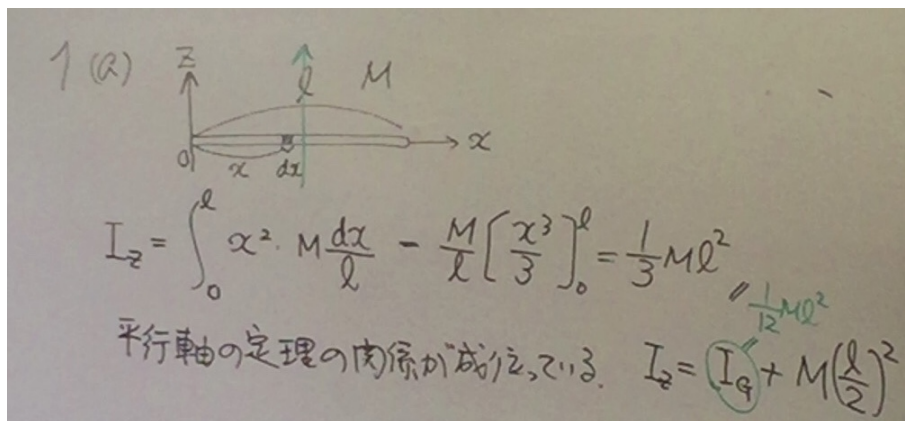 1 (a) z l M
O x dx x
I_z = ∫_0^l x²・M dx/l - M/l [x³/3]_0^l = 1/3 Ml²
1/12 Ml²
平行軸の定理の関係が成り立っている. I_z = I_G + M(l/2)²